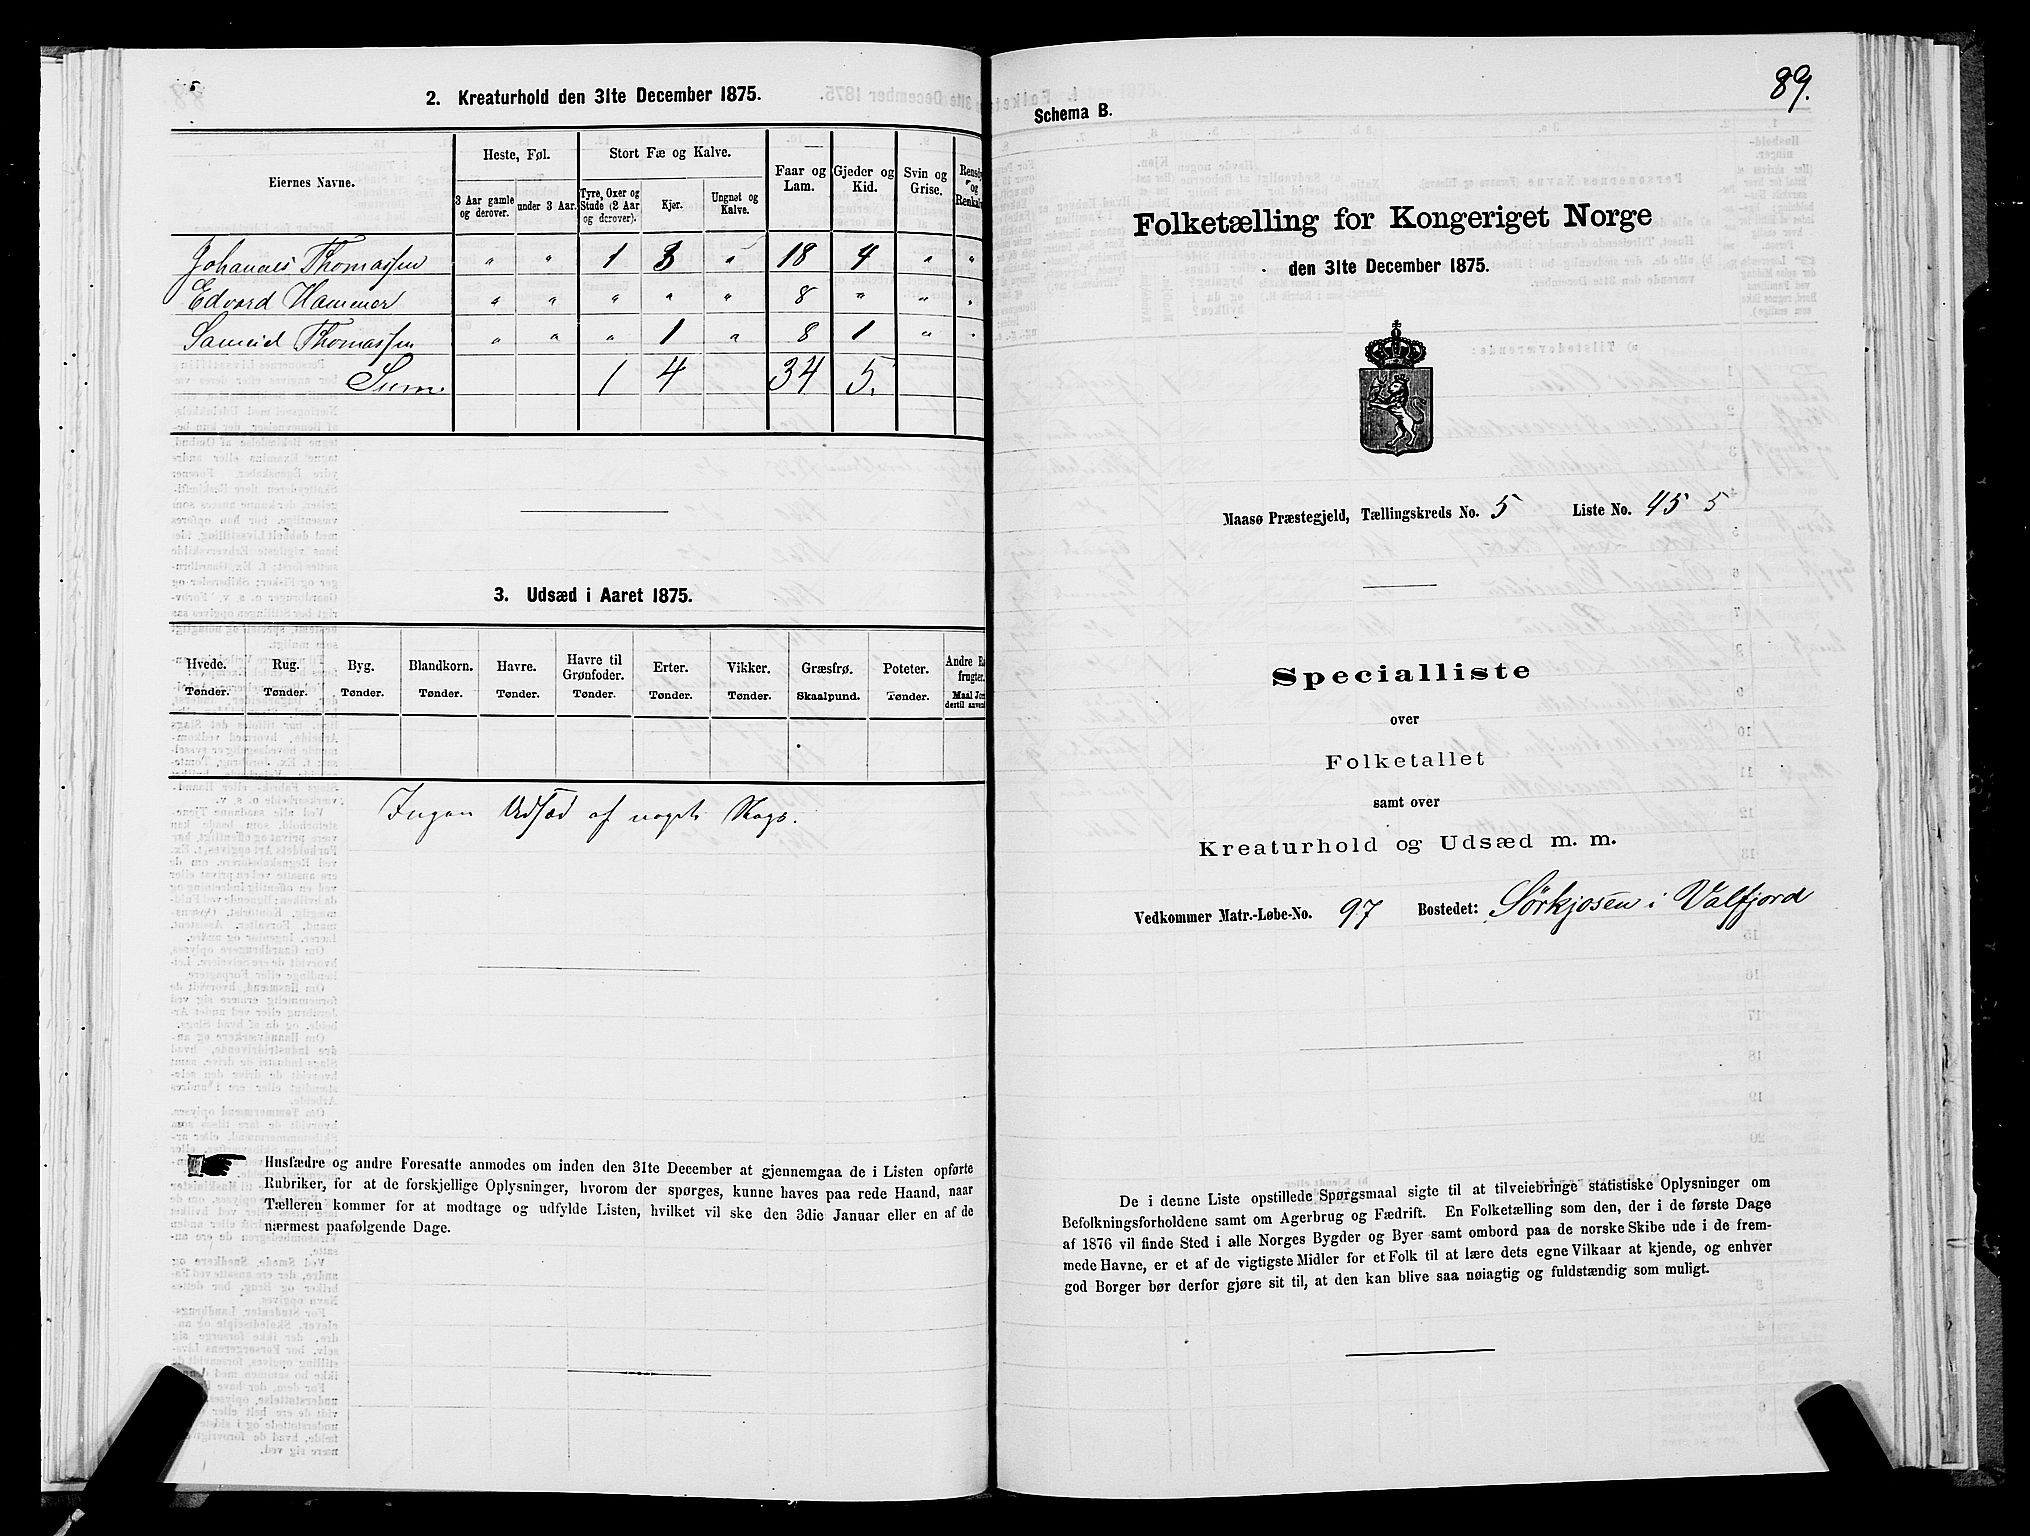 2. Kreaturhold den 31te December 1875.
Eiernes Navne.
Heste, Føl.
Stort Fæ og Kalve.
Faar og Lam.
Gjeder og Kid.
Svin og Grise.
3 Aar gamle og derover.
under 3 Aar.
Tyre, Oxer og Stude (2 Aar og derover).
Kjør.
Ungnøt og Kalve.
Johannes Thomassen " " 1 3 " 18 4 " "
Edvard Hammer " " " " " 8 " " "
Thomassen " " " 1 " 8 1 " "
Sum 1 4 34 5.
3. Udsæd i Aaret 1875.
Hvede. Rug. Byg. Blandkorn. Havre. Havre til Grønfoder. Erter. Vikker. Græsfrø. Poteter. Andre
Tønder. Tønder. Tønder. Tønder. Tønder. Tønder. Tønder. Tønder. Skaalpund. Tønder.
Ingen Udsæd af noget Slags.
Husfædre og andre Foresatte anmodes om inden den 31te December at gjennemgaa de i Listen opførte
Rubriker, for at de forskjellige Oplysninger, hvorom der spørges, kunne haves paa rede Haand, naar
Tælleren kommer for at modtage og udfylde Listen, hvilket vil ske den 3die Januar eller en af de
nærmest paafølgende Dage.
89.
Schema B.
Folketælling for Kongeriget Norge
den 31te December 1875.
Maasø Præstegjeld, Tællingskreds No. 5 Liste No. 45 5
Specialliste
over
Folketallet
samt over
Kreaturhold og Udsæd m. m.
Vedkommer Matr.-Løbe-No. 97 Bostedet: Sørkjosen i Valfjord
De i denne Liste opstillede Spørgsmaal sigte til at tilveiebringe statistiske Oplysninger om
Befolkningsforholdene samt om Agerbrug og Fædrift. En Folketælling som den, der i de første Dage
af 1876 vil finde Sted i alle Norges Bygder og Byer samt ombord paa de norske Skibe ude i de frem-
mede Havne, er et af de vigtigste Midler for et Folk til at lære dets egne Vilkaar at kjende, og enhver
god Borger bør derfor gjøre sit til, at den kan blive saa nøiagtig og fuldstændig som muligt.